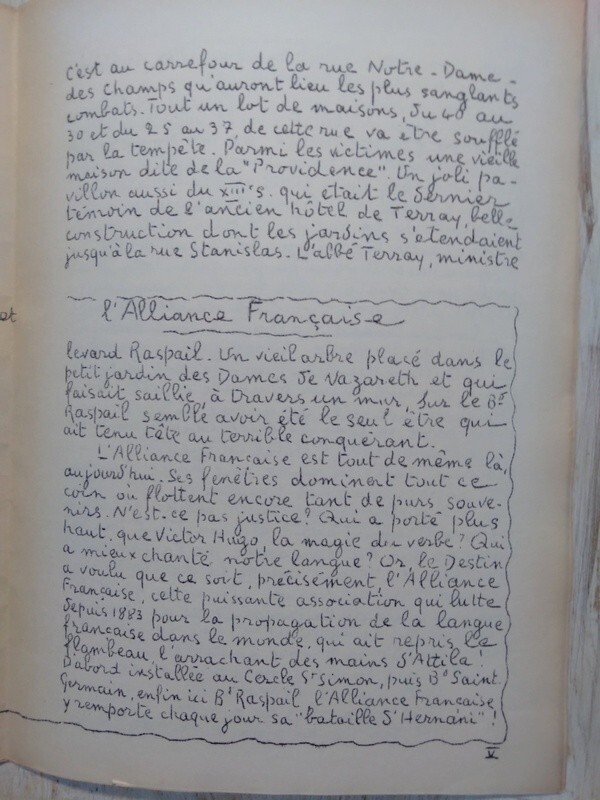 c'est au carrefour de la rue Notre-Dame-
des Champs qu'auront lieu les plus sanglants
combats. Tout un lot de maisons, du 40 au
30 et du 25 au 37, de cette rue va être soufflé
par la tempête. Parmi les victimes une vieille
maison dite de la "Providence". Un joli pa-
villon aussi du XIII's. qui était le dernier
témoin de l'ancien hôtel de Terray, belle
construction dont les jardins s'étendaient
jusqu'à la rue Stanislas. L'abbé Terray, ministre
et
l'Alliance Française
levard Raspail. Un vieil arbre placé dans le
petit jardin des Dames de Nazareth et qui
faisait saillie, à travers un mur, sur le Bd
Raspail semble avoir été le seul être qui
ait tenu tête au terrible conquérant.
L'Alliance Française est tout de même là,
aujourd'hui. Ses fenêtres dominent tout ce
coin où flottent encore tant de purs souve-
nirs. N'est-ce pas justice? Qui a porté plus
haut, que Victor Hugo, la magie du verbe? Qui
a mieux chanté notre langue? Or, le Destin
a voulu que ce soit, précisément, l'Alliance
Française, cette puissante association qui lutte
depuis 1883 pour la propagation de la langue
française dans le monde, qui ait repris le
flambeau l'arrachant des mains d'Attila!
D'abord installée au Cercle St Simon, puis Bd Saint
Germain, enfin ici Bd Raspail, l'Alliance Française
y remporte chaque jour sa "bataille d'Hernani"!
V